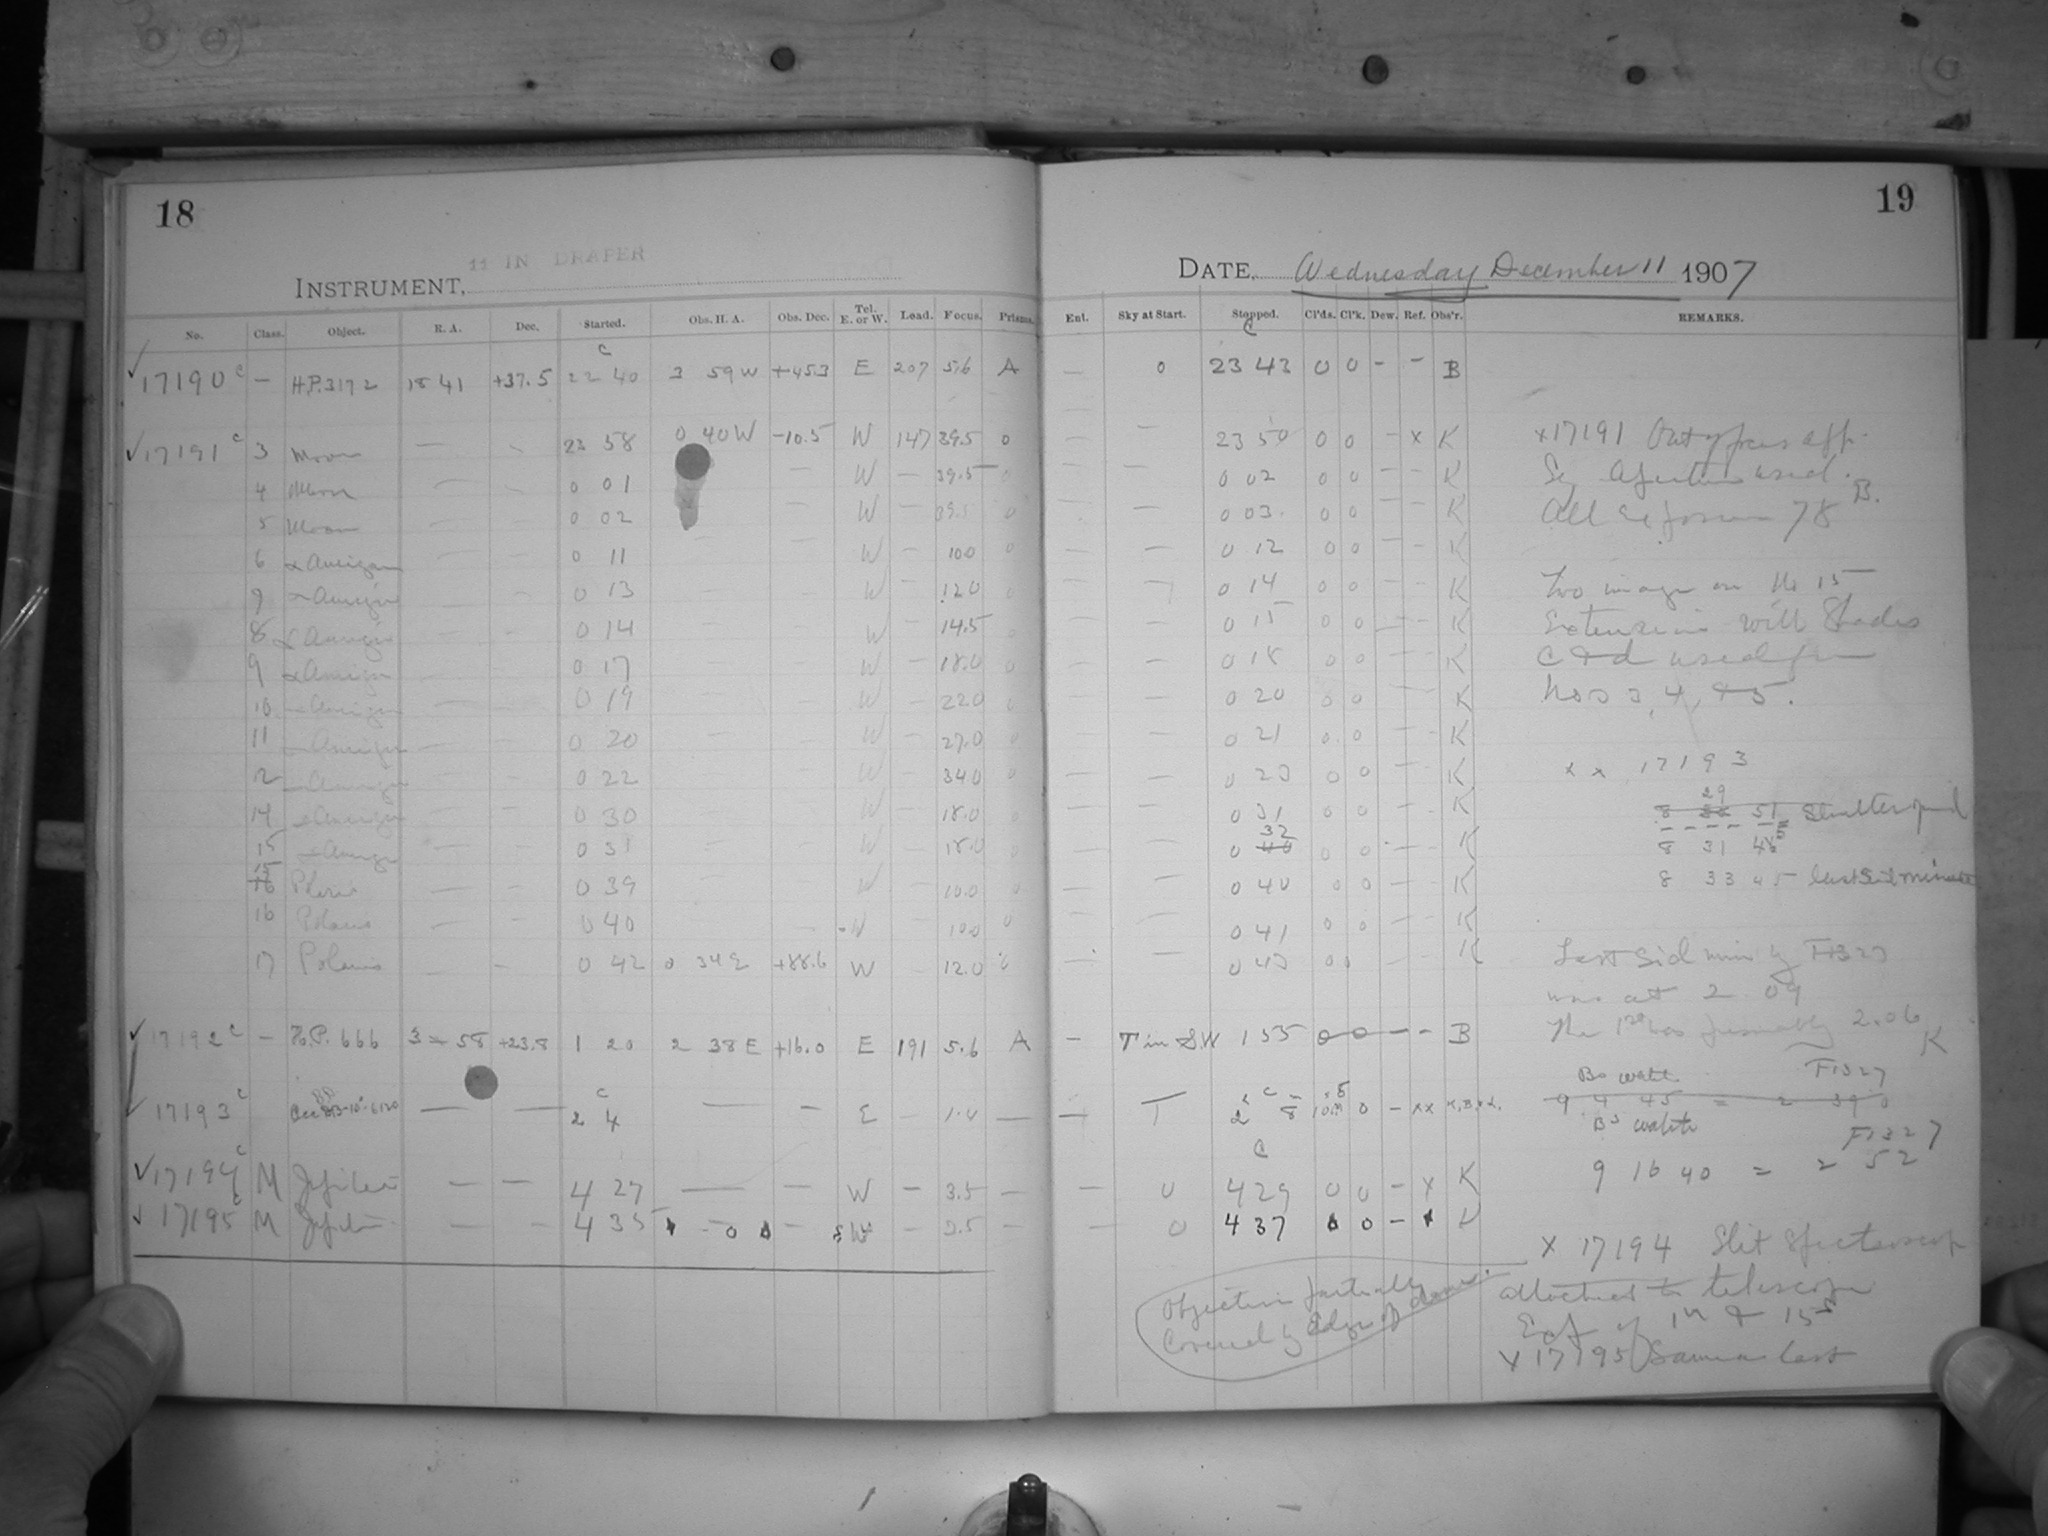 18
11 IN DRAPER
INSTRUMENT,
No. Class. Object. R. A. Dec. Started. Obs. H. A. Obs. Dec. Tel. E. or W. Load. Focus. Prisms.
17190 c – H.P. 3172 18 41 +37.5 22 40 3 59W +45.3 E 207 5.6 A
17191 c 3 Moon — — 23 58 0 40W -10.5 W 147 39.5 0
4 Moon — — 0 01 — W — 39.5 0
5 Moon — — 0 02 — W — 39.5 0
6 α Aurigae — — 0 11 — — W — 10.0 0
α Aurigae — — 0 13 — — W — 12.0 0
8 α Aurigae — — 0 14 — — W — 14.5 0
9 α Aurigae — — 0 17 — — W — 18.0 0
10 α Aurigae — — 0 19 — — W — 22.0 0
11 α Aurigae — — 0 20 — — W — 27.0 0
12 α Aurigae — — 0 22 — — W — 34.0 0
14 α Aurigae — — 0 30 — — W — 18.0 0
15 α Aurigae — — 0 31 — — W — 18.0 0
Polaris — — 0 39 — — W — 10.0 0
16 Polaris — — 0 40 — W 10.0 0
17 Polaris — — 0 42 0 34E +88.6 W 12.0 0
17192 c – H.P. 666 3 58 +23.8 1 20 2 38E +16.0 E 191 5.6 A
17193 c — — 2 4 — — E —
17194 c M Jupiter — — 4 27 — — W — 3.5 —
17195 c M Jupiter — — 4 35 W — 3.5 —
19
DATE, Wednesday December 11 1907
Ent. Sky at Start. Stopped. Cl'ds. Cl'k. Dew. Ref. Obs'r. REMARKS.
— 0 23 43 0 0 – – B
— — 23 50 0 0 – x K
— — 0 02 0 0 – – K
— — 0 03 0 0 – – K
— — 0 12 0 0 – – K
— — 0 14 0 0 – – K
— — 0 15 0 0 – – K
— — 0 18 0 0 – – K
— — 0 20 0 0 – – K
— — 0 21 0 0 – – K
— — 0 23 0 0 – – K
— — 0 31 0 0 – – K
— — 0 32 0 0 – – K
— — 0 40 0 0 – – K
— — 0 41 0 0 – – K
— — 0 43 0 0 K
— T in S.W 1 55 0 0 – – B
— T 2 8 0 – xx
— 0 4 29 0 0 – x K
— 0 4 37 0 0 – K
x 17191 Out of focus app.
Sq Aperture used.
B.
All exposures 78
Two images on No 15
Extension with Shades
C & d used for
Nos 3, 4, & 5.
x x 17193
29
8 51 Shutter opened
8 31
8 33 45 last Sid minute
Last Sid min of F1327
was at 2 09
The 1st was presumably 2.06
K
Bs watch F1327
9 4 45 = 2 39 0
Bs watch F1327
9 16 40 = 2 52
x 17194 Slit Spectroscope
attached to telescope
Exp of 1m & 15s
x 17195 Same as last
Objective partially
Covered by Edge of dome.